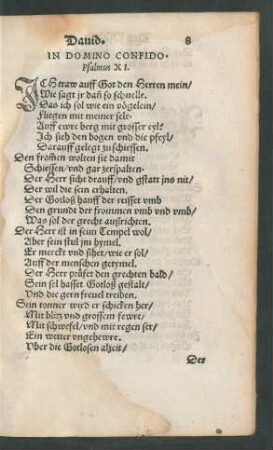 Dauid. 8
IN DOMINO CONFIDO.
Psalmus XI.
ICH traw auff Got den Herren mein/
Wie sagt jr dañ so schnelle.
Das ich sol wie ein vögelein/
Fliegen mit meiner sele.
Auff ewre berg mit grosser eyl?
Ich sieh den bogen vnd die pfeyl/
Darauff gelegt zu schiessen.
Den frommen wolten sie damit
Schiessen/vnd gar zerspalten.
Der Herr sicht drauff/vnd gstatt jns nit/
Der wil die sein erhalten.
Der Gotloß hauff der reisset vmb
Den grunde der frommen vmb vnd vmb/
Was sol der grecht ausrichten.
Der Herr ist in seun Tempel wol/
Aber sein stul jm hymel.
Er merckt vnd sihet/wie er sol/
Auff der menschen getymel.
Der Herr prüfet den grechten bald/
Sein sel hasset Gotloß gestalt/
Vnd die gern freuel treiben.
Sein tonner wird er schicken her/
Mit blitz vnd grossem fewre/
Mit schwefel/vnd mit regen ser/
Ein wetter vngehewre.
Vber die Gotlosen alzeit/
Der